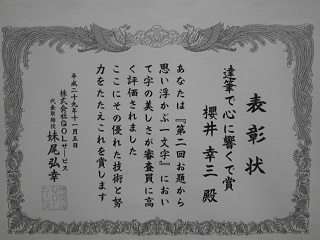 表彰状
達筆で心に響くで賞
櫻井幸三 殿
あなたは『第二回お題から
思い浮かぶ一文字』におい
て字の美しさが審査員に高
く評価されました
ここにその優れた技術と努
力をたたえこれを賞します
平成二十九年十一月五日
株式会社QOLサービス
代表取締役 妹尾弘幸